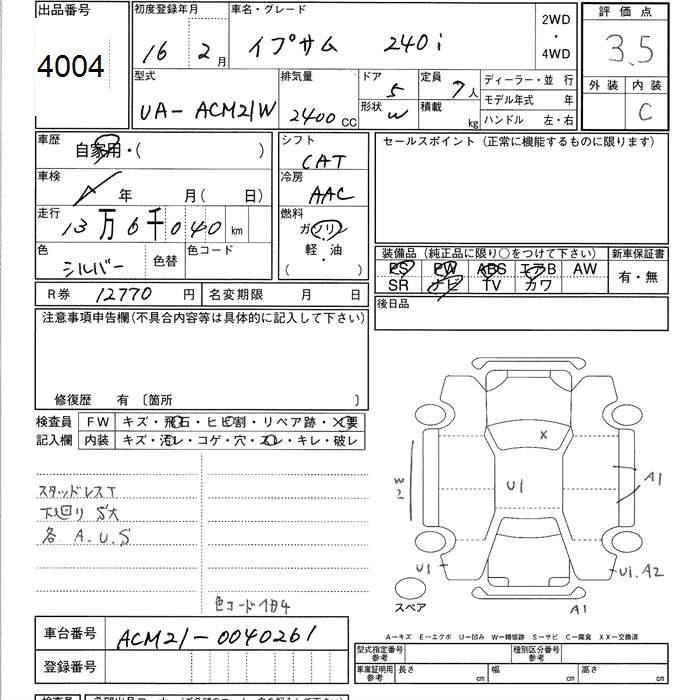 出品番号
4004
初度登録年月
16 2月
車名・グレード
イプサム 240i
2WD
・
4WD
評価点
3.5
外装 内装
C
型式
UA-ACM21W
排気量
2400 CC
ドア 5
形状 W
定員 7人
積載 kg
ディーラー・並 行
モデル年式 年
ハンドル 左・右
車歴 自家用・( )
車検 年 月(日)
走行 13万6千040km
色 シルバー 色替 色コード
R券 12770円 名変期限 月 日
シフト
CAT
冷房
AAC
燃料
ガソリン
軽・油
( )
セールスポイント (正常に機能するものに限ります)
装備品 (純正品に限り○をつけて下さい) 新車保証書
PS PW ABS エアB AW
SR ナビ TV カワ
有・無
後日品
注意事項申告欄(不具合内容等は具体的に記入して下さい)
修復歴 有 〔箇所 〕
検査員 FW キズ・飛石・ヒビ割・リペア跡・X要
記入欄 内装 キズ・汚レ・コゲ・穴・スレ・キレ・破レ
スタッドレスT
下廻りS大
各 A.U.S
色コード1B4
X
W2
U1
A1
U1
U1.A2
A1
スペア
A−キズ E−エクボ U−凹み W−補修跡 S−サビ C−腐食 XX−交換済
車台番号 ACM21-0040261
登録番号
型式指定番号 参考
種別区分番号 参考
車庫証明用 参考 長さ cm 幅 cm 高さ cm